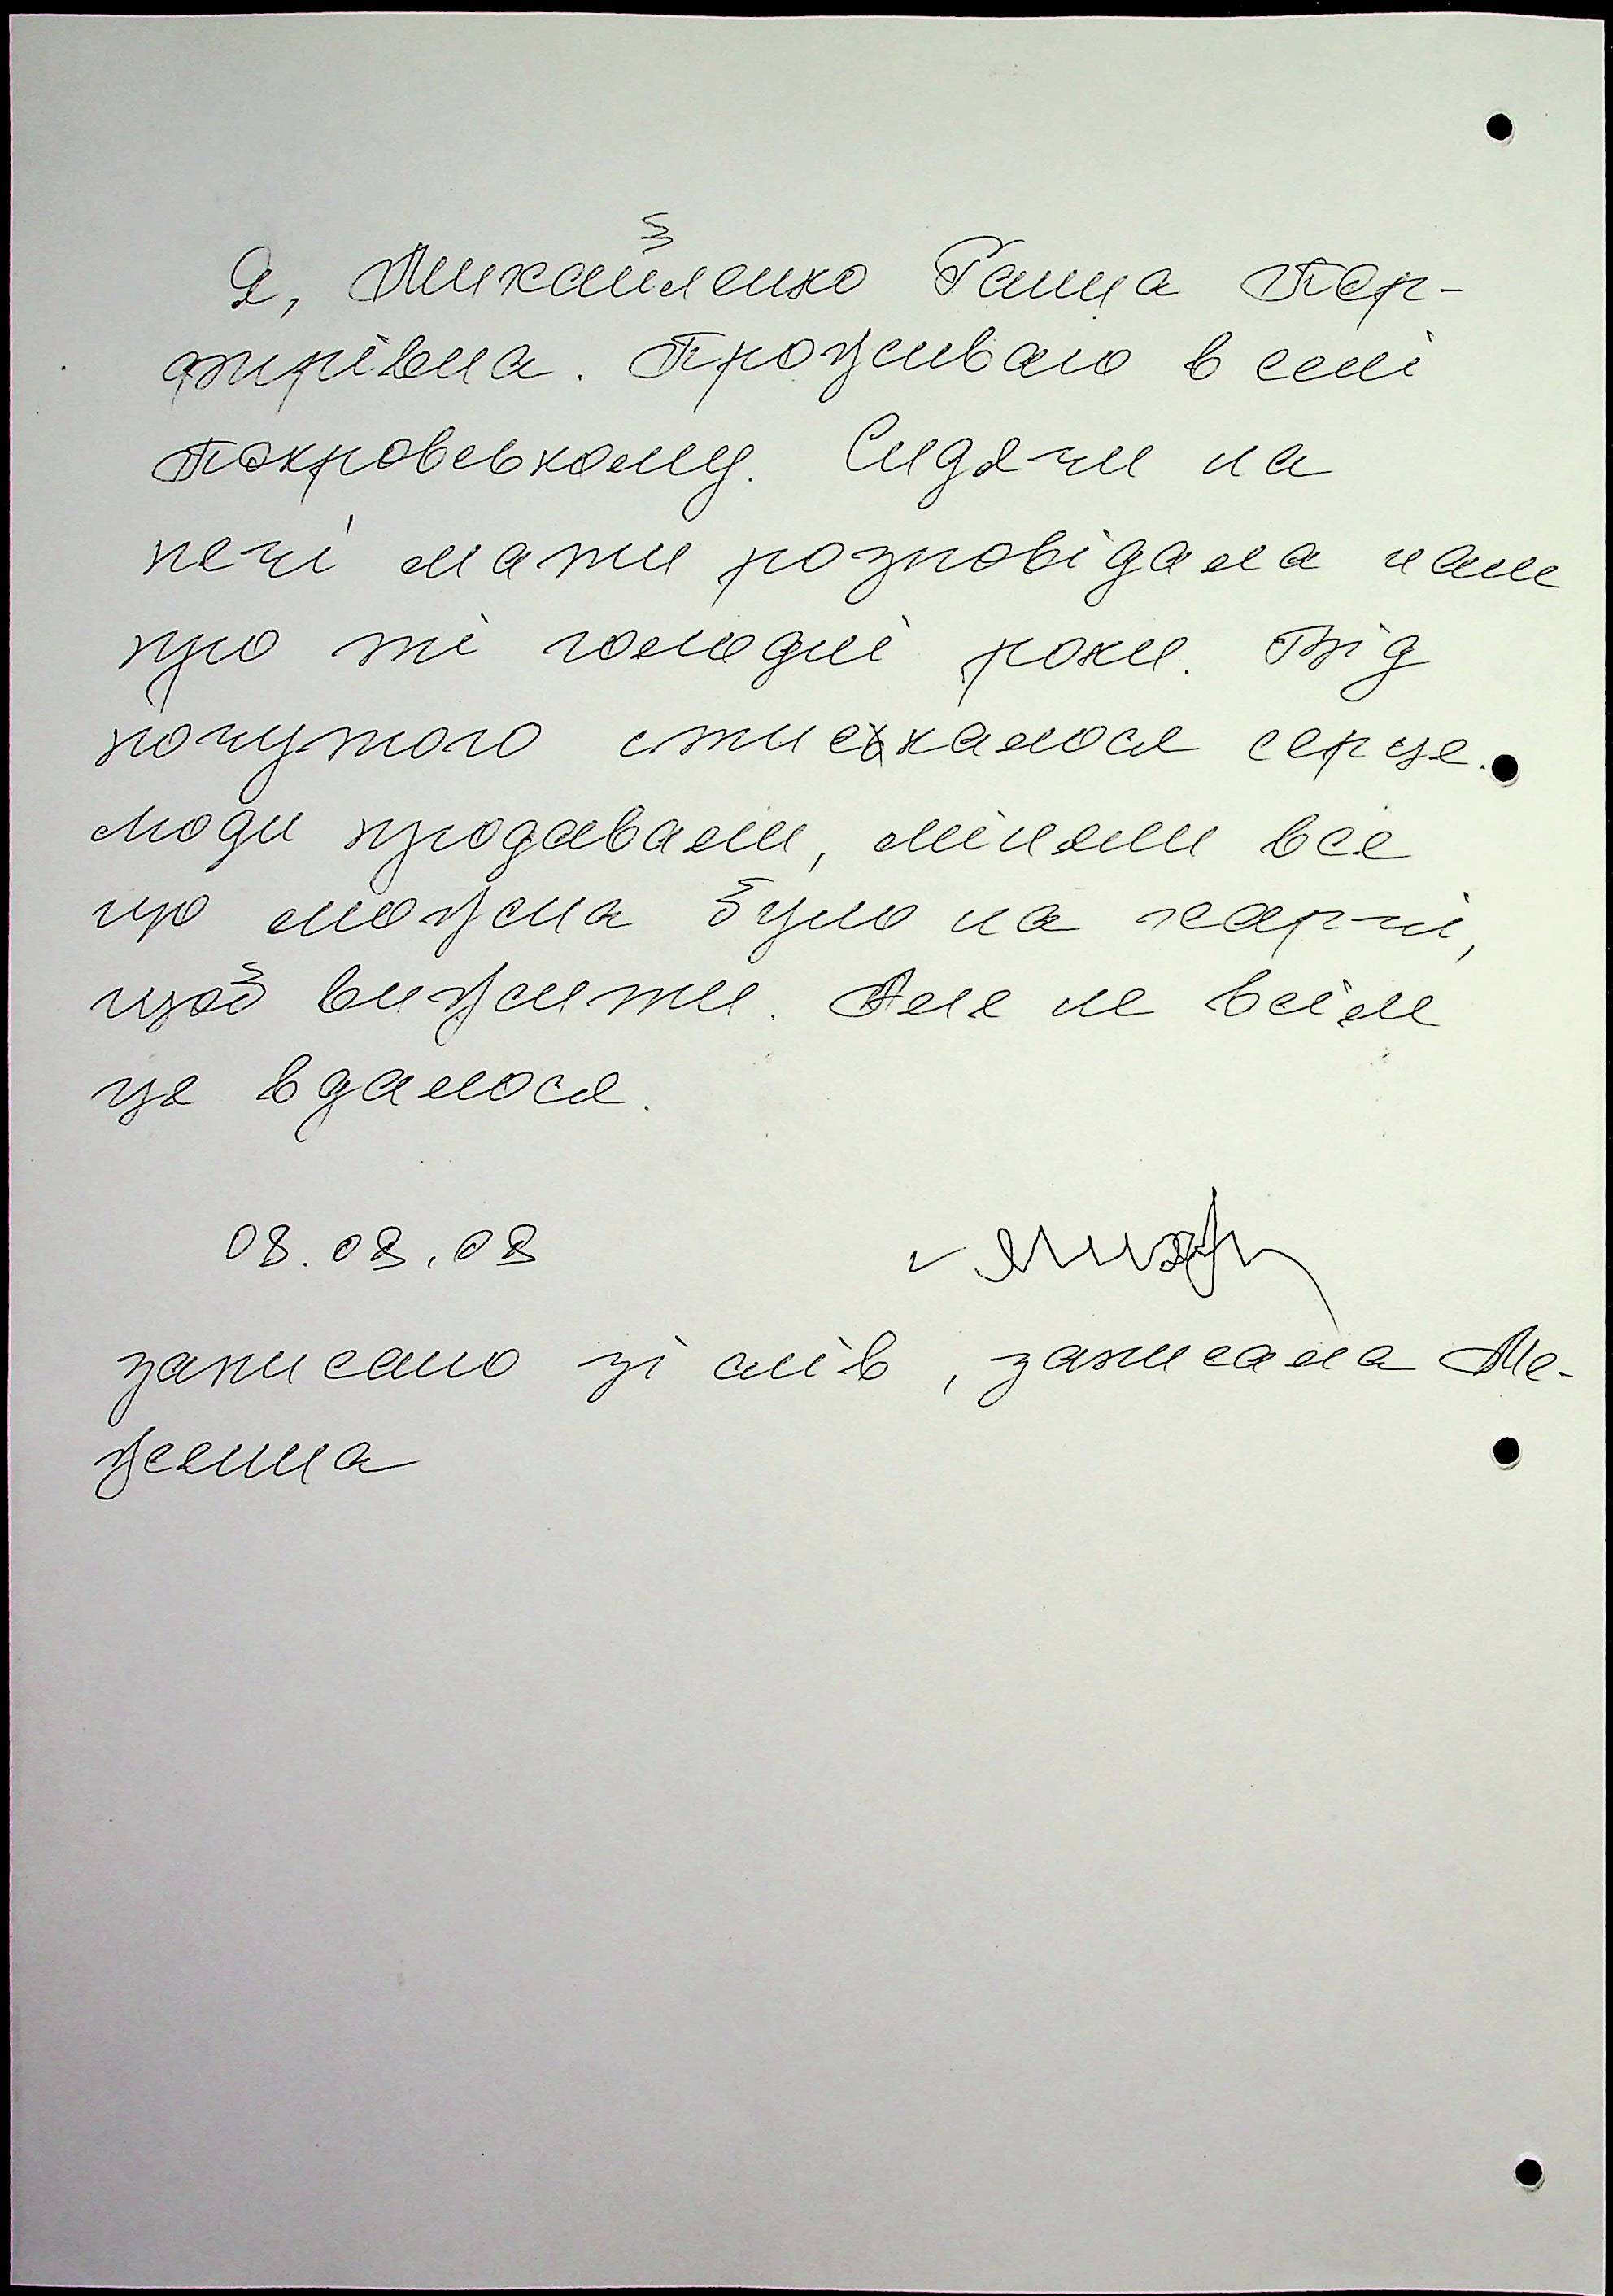 Я, Михайленко Ганна Пор-
фирівна. Проживаю в селі
Покровському. Сидячи на
печі мати розповідала нам
про ті голодні роки. Від
почутого стискалося серце.
Люди продавали, міняли все
що можна було на харчі,
щоб вижити. Але не всім
це вдалося.
08.08.08
записано зі слів, записала Ме-
женна